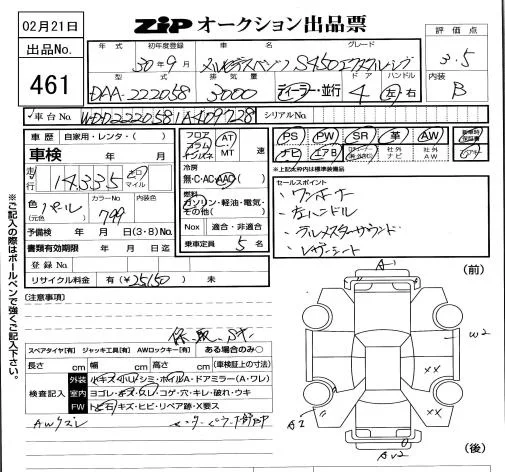 02月21日
ZiP オークション出品票
出品No.
461
評価点
3.5
内装
B
年式 初年度登録 車名 グレード
30年9月 メルセデスベンツ S450エクスクルーシブ
型式 排気量 ドア ハンドル
DAA-222058 3000 ディーラー・並行 4 左 右
車台No. WDD2220581A409728 シリアルNo.
車歴 自家用・レンタ・( )
車検 年 月
走行 14335 キロ マイル
色(元色) パール カラーNo. 799 内装色
予備検 年 月 日(3・8)No.
書類有効期限 年 月 日迄
登録No.
リサイクル料金 有(¥25150)
フロア コラム インパネ AT MT 速
冷房 無・C・AC・AAC
燃料 ガソリン・軽油・電気・その他( )
Nox 適合・非適合
乗車定員 5 名
PS PW SR 革 AW
ナビ エアB 社外ナビ 社外AW
※上記太枠内は標準装備品
セールスポイント
・ワンオーナー
・左ハンドル
・ブルメスターサウンド
・レザーシート
(注意事項)
保、取、
スペアタイヤ[有] ジャッキ工具[有] AWロックキー[有] ある場合のみ○
長さ cm 幅 cm 高さ cm (車検証上の寸法)
検査記入
外装 小キズ・小凹・シミ・ホイルA・ドアミラー(A・ワレ)
室内 ヨゴレ・キズ・スレ・コゲ・穴・キレ・破れ・ウキ
FW トビ石・キズ・ヒビ・リペア跡・X要ス
AWキズレ
(前)
A1
W2
A2
××
××
AW2
(後)
※ご記入の際はボールペンで強くご記入下さい。